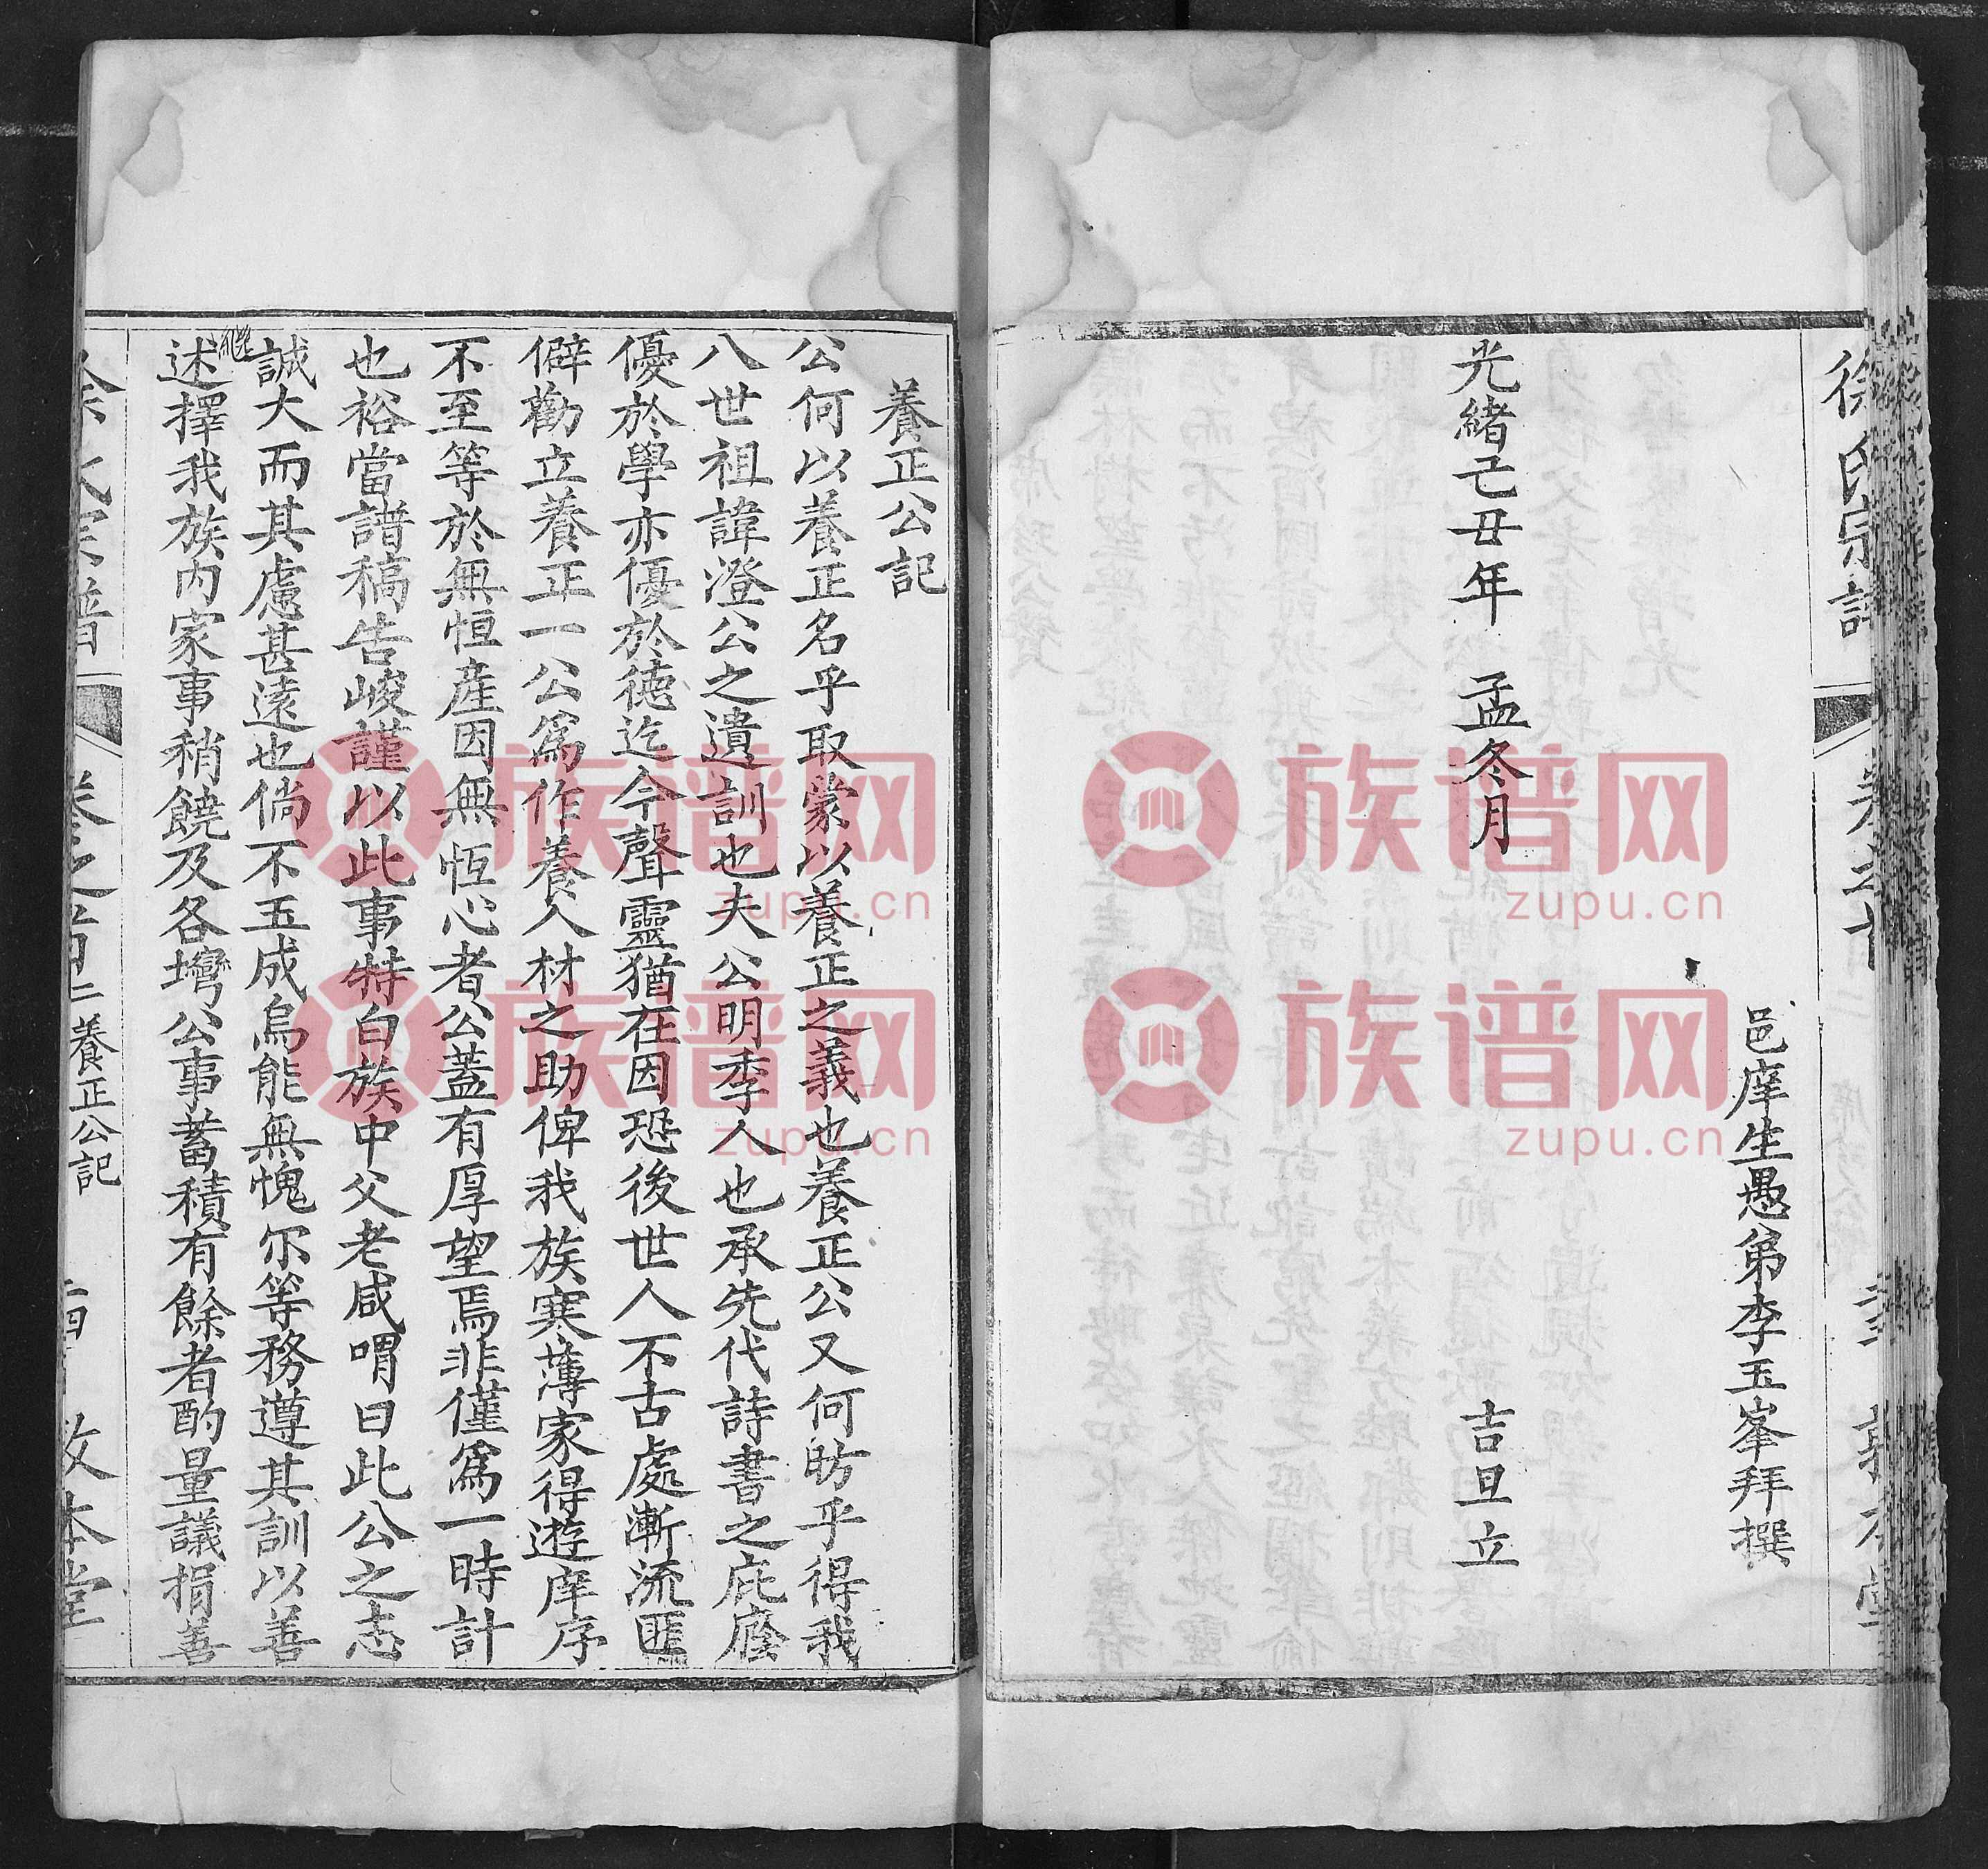 徐氏宗譜
邑庠生愚弟李玉峯拜撰
光緒己丑年　孟冬月　吉旦立
養正公記
公何以養正名乎取蒙以養正之義也養正公又何昉乎得我
八世祖諱澄公之遺訓也夫公明季人也承先代詩書之庇廕
優於學亦優於德迄今聲靈猶在因恐後世人不古處漸流匪
僻勸立養正一公爲作養人材之助俾我族寒薄家得遊庠序
不至等於無恒産因無恆心者公蓋有厚望焉非僅爲一時計
也裕當譜稿告峻謹以此事特白族中父老咸喟曰此公之志
誠大而其慮甚遠也倘不五成烏能無愧尔等務遵其訓以善
繼
述擇我族内家事稍饒及各塆公事蓄積有餘者酌量議捐善
徐氏宗譜
卷之首
二養正公記
敦本堂
族谱网
zupu.cn
族谱网
zupu.cn
族谱网
zupu.cn
族谱网
zupu.cn